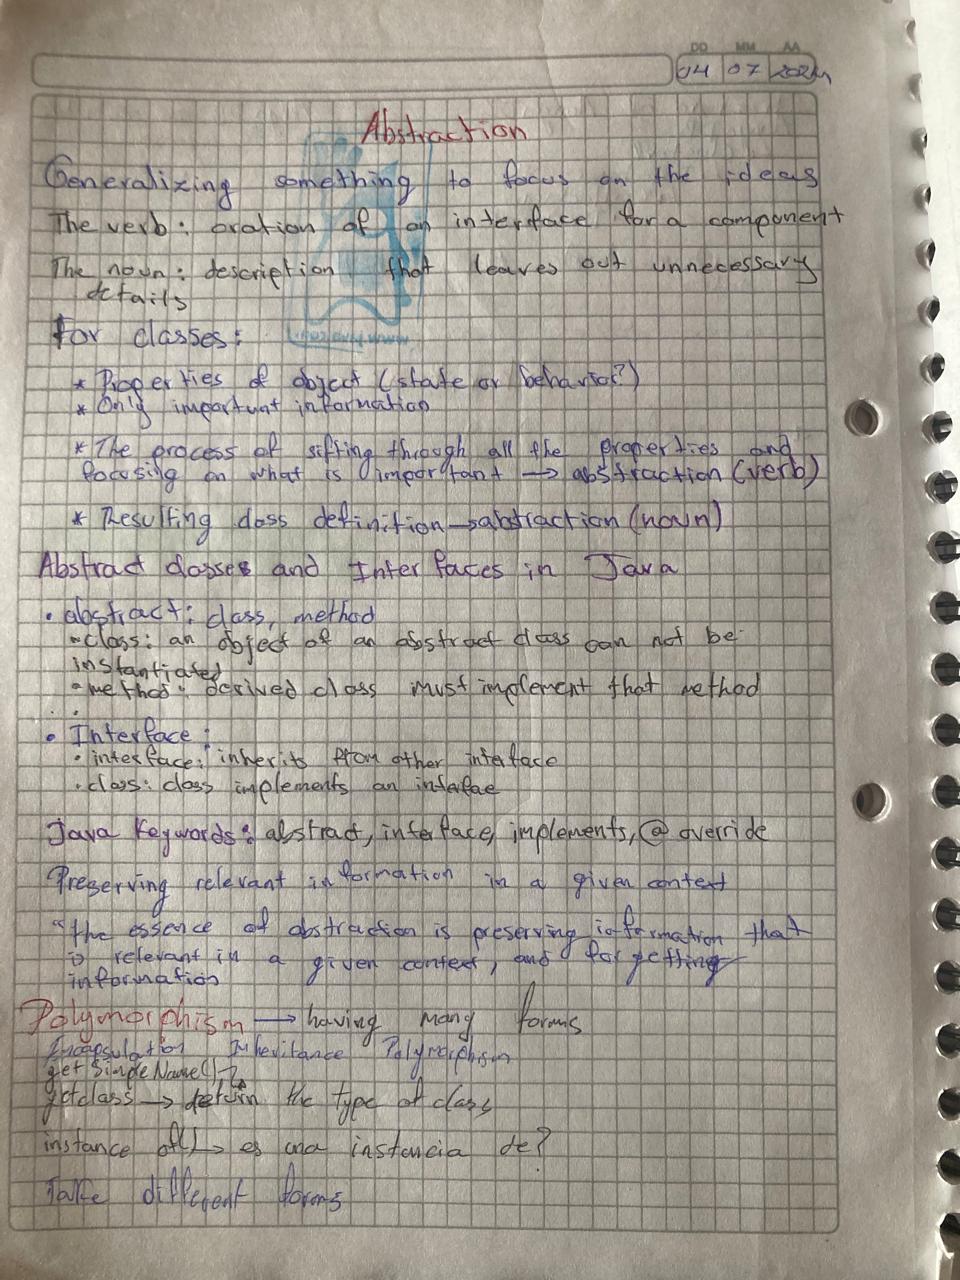 DD MM AA
04 07 2024
Abstraction
Generalizing something to focus on the ideas
The verb: oration of an interface for a component
The noun: description that leaves out unnecessary
details
For classes:
* Properties of object (state or behavior?)
* Only important information
* The process of sifting through all the properties and
focusing on what is important → abstraction (verb)
* Resulting class definition → abstraction (noun)
Abstract classes and Interfaces in Java
• abstract: class, method
- class: an object of an abstract class can not be
instantiated
- method: derived class must implement that method
• Interface:
• interface: inherits from other interface
• class: class implements an intefae
Java Keywords: abstract, interface, implements, @ override
Preserving relevant information in a given context
"the essence of abstraction is preserving information that
is relevant in a given context, and forgetting
information
Polymorphism → having many forms
Encapsulation Inheritance Polymorphism
getSimpleName()
getclass → return the type of class
instance of() → es una instancia de?
Take different forms